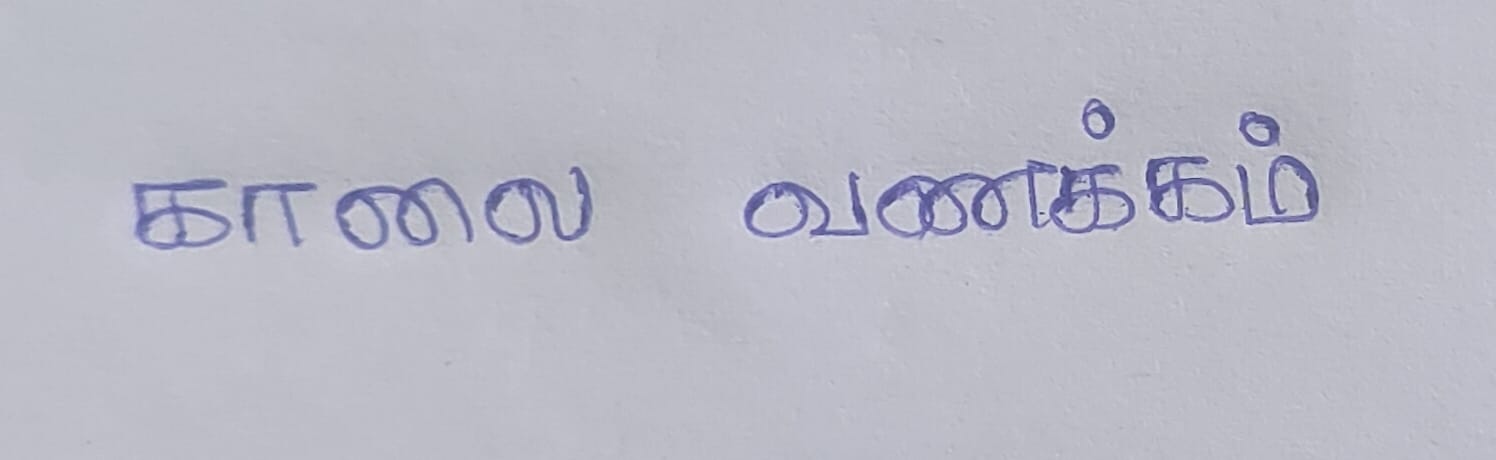 காலை வணக்கம்